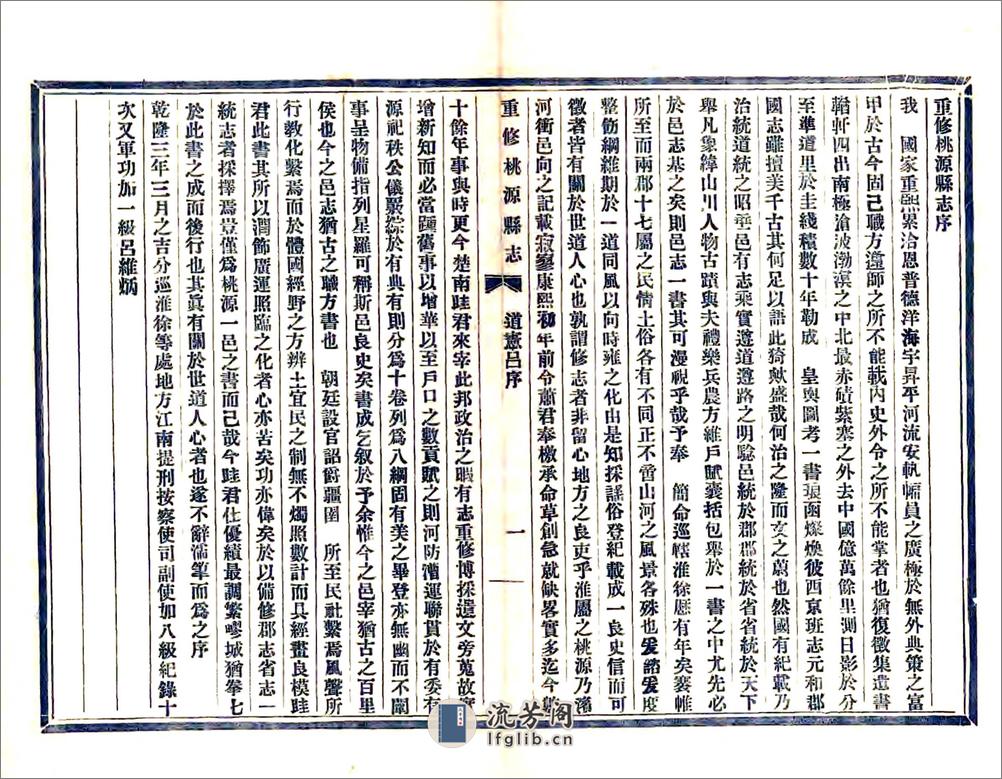 重修桃源縣志序
我 國家重熙累洽恩普德洋海宇昇平河流安軌幅員之廣極於無外典策之富
甲於古今固已職方違師之所不能載內史外令之所不能掌者也猶復徵集遺書
輶軒四出南極滄波渤溟之中北最赤磧紫塞之外去中國億萬餘里測日影於分
至準道里於圭綫積數十年勒成 皇輿圖考一書琅函燦煥彼西京班志元和郡
國志雖擅美千古其何足以語此猗歟盛哉何治之隆而文之蔚也然國有紀載乃
治統道統之昭垂邑有志乘實遵道遵路之明騐邑統於郡郡統於省省統於天下
舉凡象緯山川人物古蹟與夫禮樂兵農方維戶賦囊括包舉於一書之中尤先必
於邑志基之矣則邑志一書其可漫視乎哉予奉 簡命巡轄淮徐歷有年矣褰帷
所至而兩郡十七屬之民情土俗各有不同正不啻山河之風景各殊也爰諮爰度
整飭綱維期於一道同風以向時雍之化由是知採謠俗登紀載成一良史信而可
徵者皆有關於世道人心也孰謂修志者非留心地方之良吏乎淮屬之桃源乃濱
河衝邑向之記載寂寥康熙初年前令蕭君奉檄承命草創急就缺畧實多迄今幾
重修桃源縣志 道憲呂序 一
十餘年事與時更今楚南眭君來宰此邦政治之暇有志重修博採遺文旁蒐故實
增新知而必當踵舊事以增華以至戶口之數貢賦之則河防漕運聯貫於有委有
源祀秩公儀纂綜於有典有則分為十卷列為八綱固有美之畢登亦無幽而不闡
事呈物備指列星羅可稱斯邑良史矣書成乞叙於予余惟今之邑宰猶古之百里
侯也今之邑志猶古之職方書也 朝廷設官詔爵疆圉 所至民社繫焉風聲所
行教化繫焉而於體國經野之方辨土宜民之制無不燭照數計而具經畫良模眭
君此書其所以潤飾廣運照臨之化者心亦苦矣功亦偉矣於以備修郡志省志一
統志者採擇焉豈僅為桃源一邑之書而已哉今眭君仕優績最調繁嘐城猶拳七
於此書之成而後行也其眞有關於世道人心者也遂不辭濡筆而為之序
乾隆三年三月之吉分巡淮徐等處地方江南提刑按察使司副使加八級紀錄十
次又軍功加一級呂維炳
流芳閣
lfglib.cn